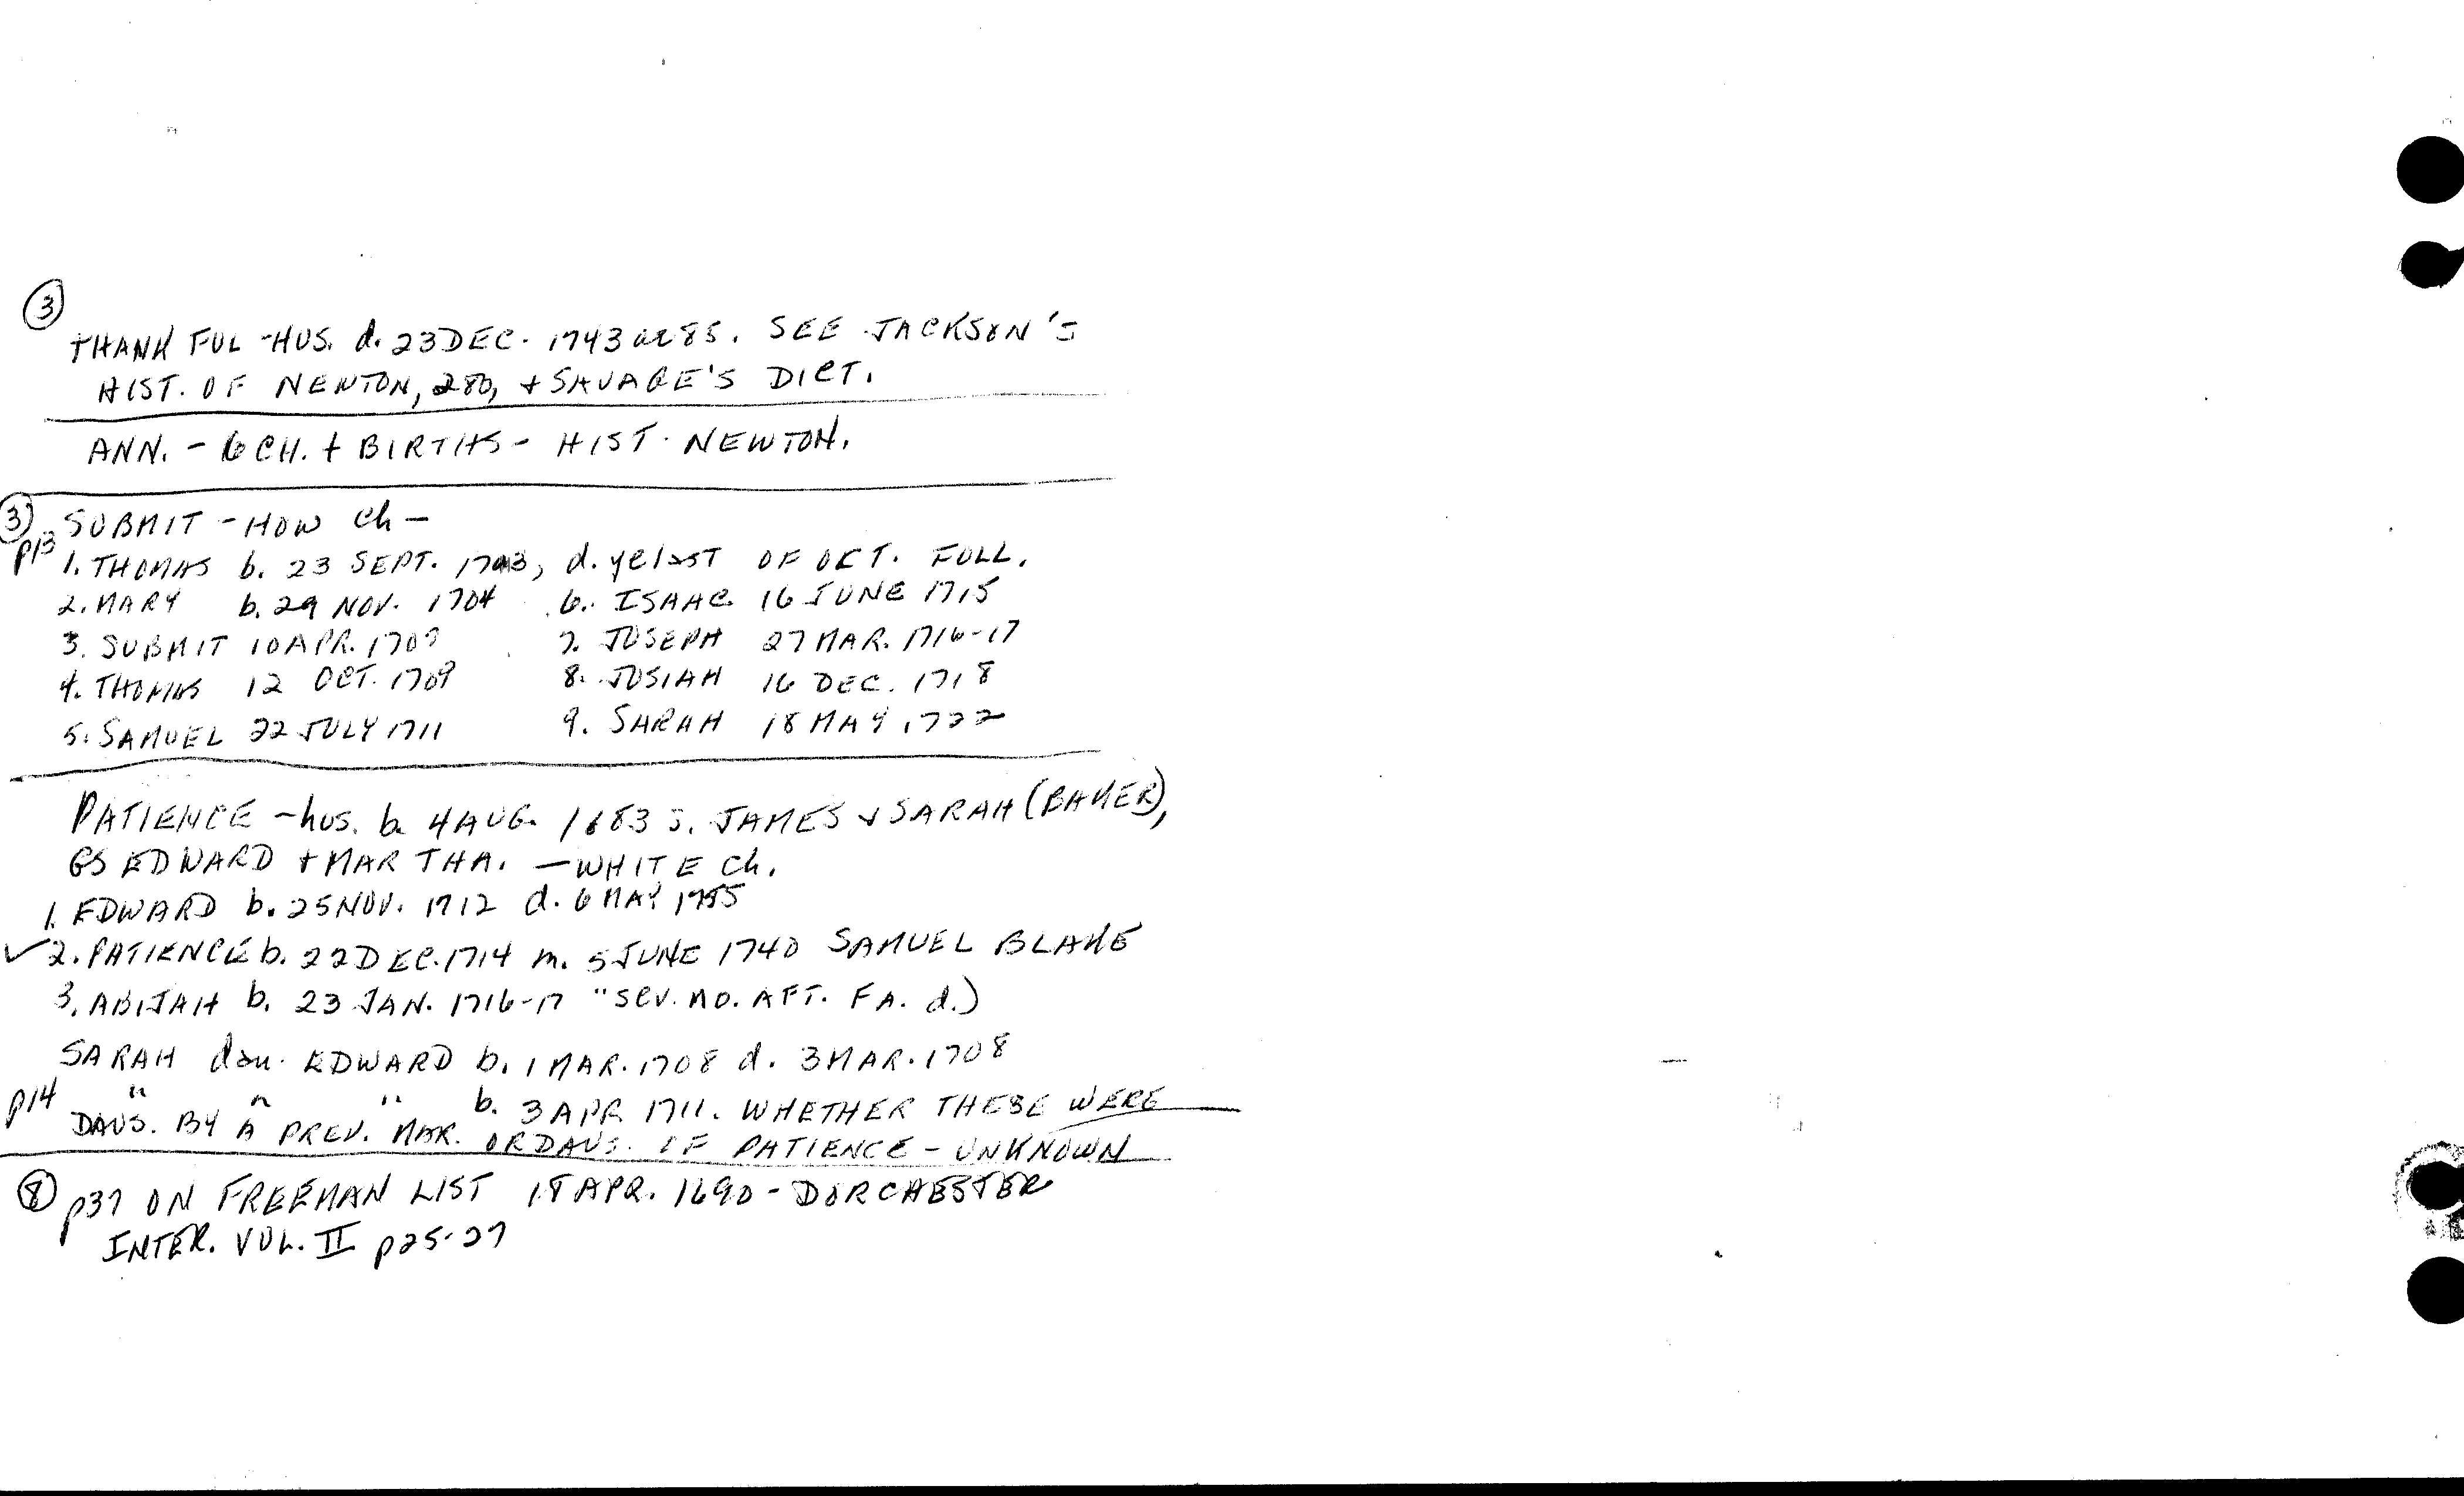 ③
THANKFUL - HUS. d. 23 DEC. 1743 ae 85. SEE JACKSON'S
HIST. OF NEWTON, 280, + SAVAGE'S DICT.
ANN. - 6 CH. + BIRTHS - HIST. NEWTON.
③ SUBMIT - HOW Ch -
p13
1. THOMAS b. 23 SEPT. 1703, d. ye last OF OCT. FOLL.
2. MARY b. 29 NOV. 1704 6. ISAAC 16 JUNE 1715
3. SUBMIT 10 APR. 1707 7. JOSEPH 27 MAR. 1716-17
4. THOMAS 12 OCT. 1709 8. JOSIAH 16 DEC. 1718
5. SAMUEL 22 JULY 1711 9. SARAH 18 MAY 1722
PATIENCE - hus. b. 4 AUG. 1683 s. JAMES + SARAH (BAKER),
GS EDWARD + MARTHA. - WHITE Ch.
1. EDWARD b. 25 NOV. 1712 d. 6 MAY
✓ 2. PATIENCE b. 22 DEC. 1714 m. 5 JUNE 1740 SAMUEL BLAKE
3. ABIJAH b. 23 JAN. 1716-17 "sev. MO. AFT. FA. d.)
SARAH dau. EDWARD b. 1 MAR. 1708 d. 3 MAR. 1708
p14 " " " b. 3 APR 1711. WHETHER THESE WERE
DAUS. BY A PREV. MAR. OR DAUS. OF PATIENCE - UNKNOWN
⑧ p37 ON FREEMAN LIST 18 APR. 1690 - DORCHESTER
INTER. VOL. II p25-27